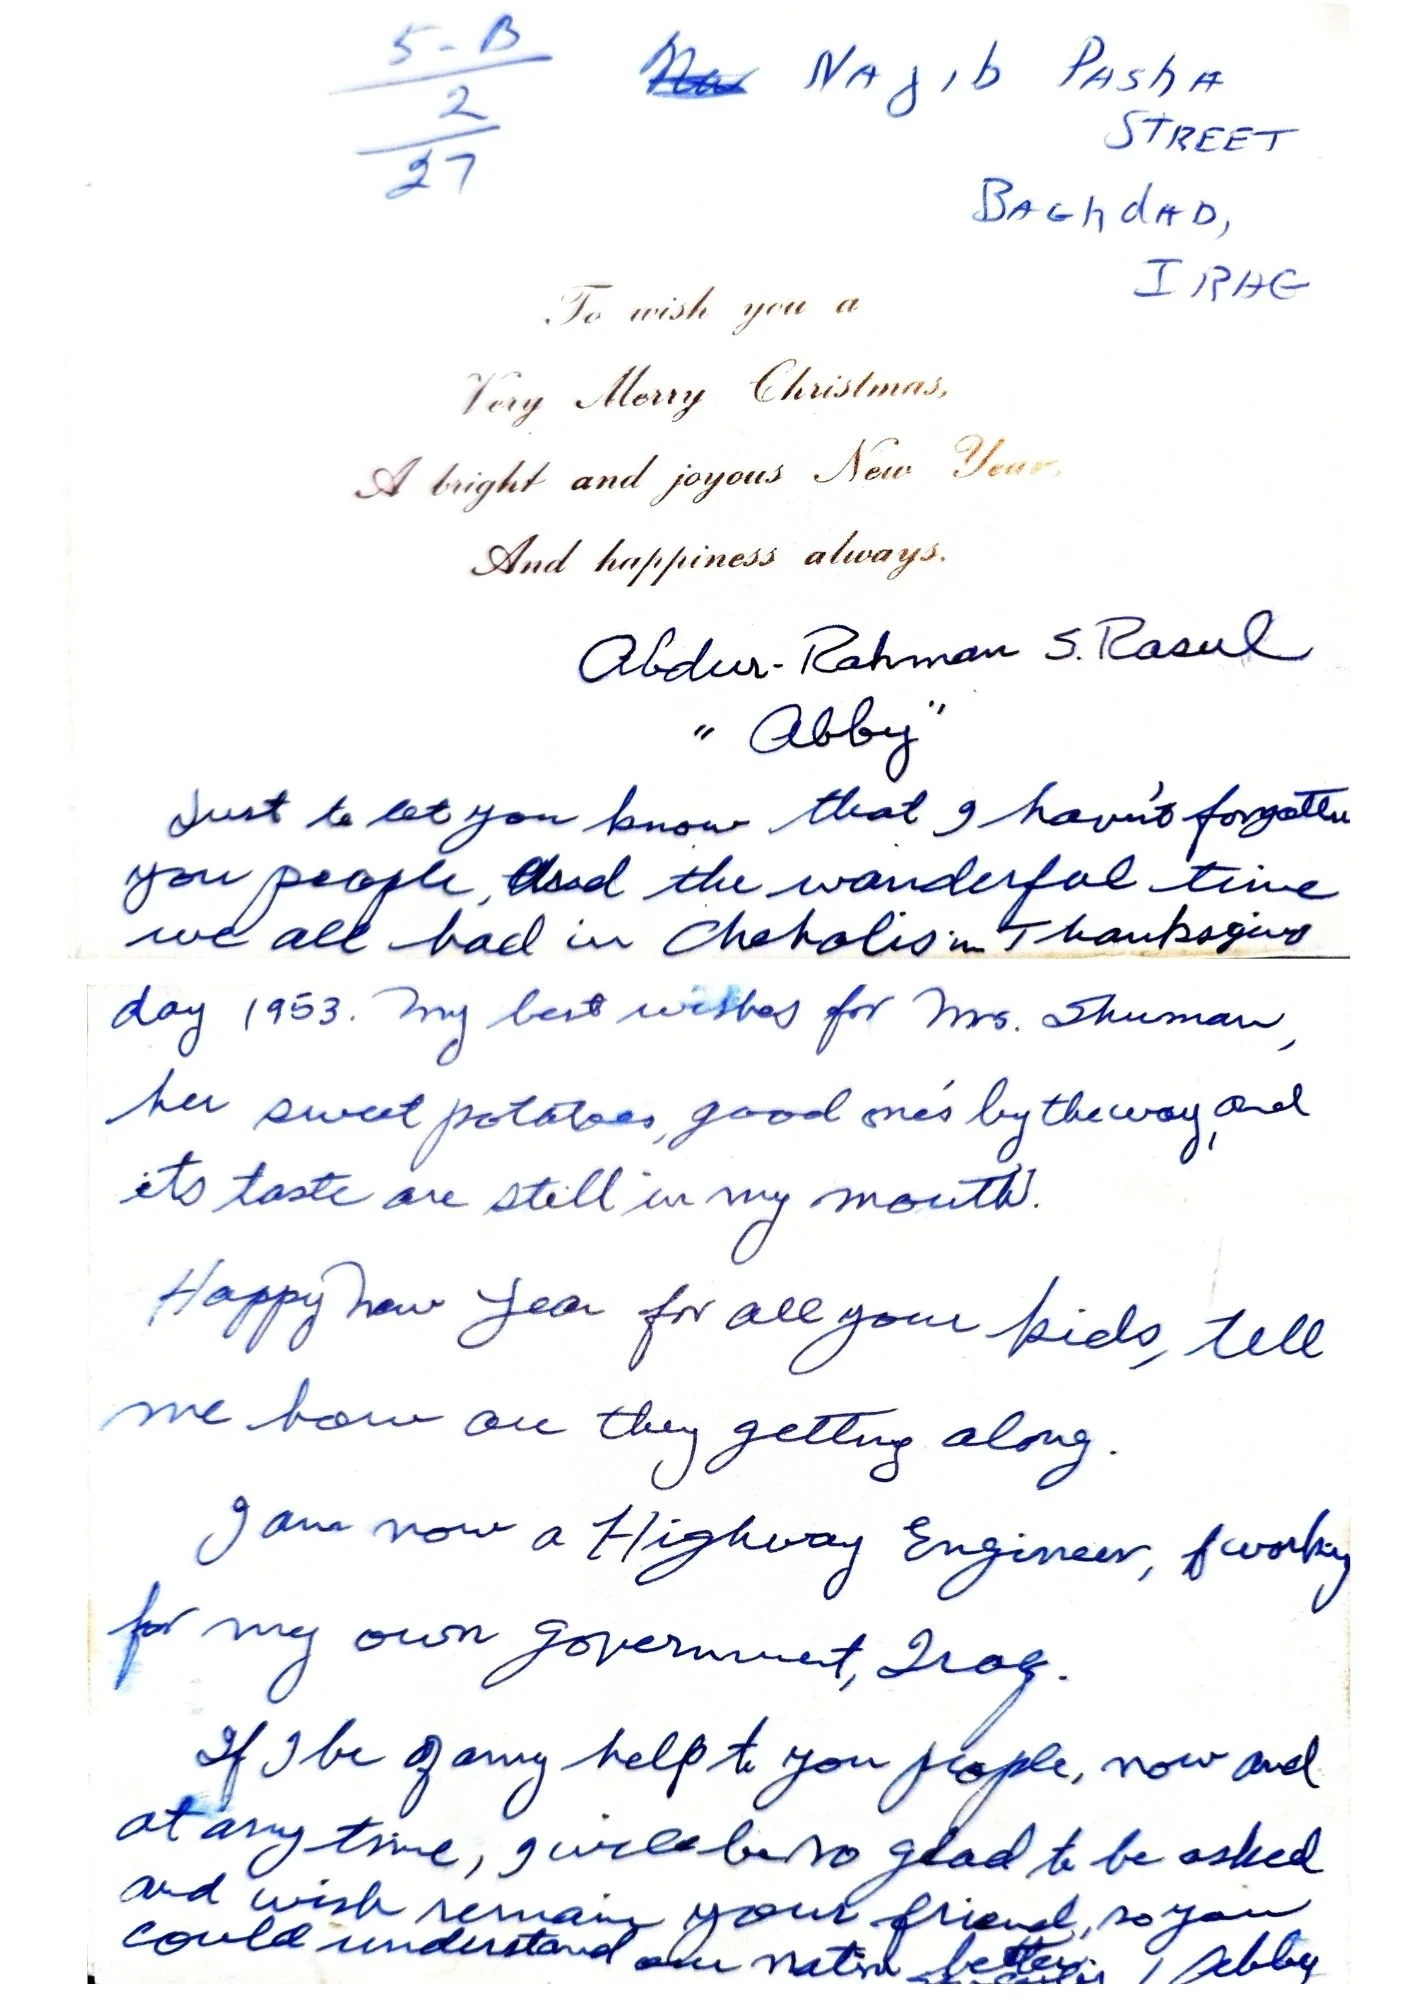 5-B
2
27
Najib Pasha
Street
Baghdad,
IRAG
To wish you a
Very Merry Christmas,
A bright and joyous New Year,
And happiness always.
Abdur-Rahman S. Rasul
"Abby"
Just to let you know that I havn't forgotten
you people, and the wanderful time
we all had in Chehalis in Thanksgiving
day 1953. My best wishes for Mrs. Shuman,
her sweet potatoes, good one's by the way, and
its taste are still in my mouth.
Happy New Year for all your kids, tell
me how are they getting along.
I am now a Highway Engineer, working
for my own government, Iraq.
If I be of any help to you people, now and
at any time, I will be so glad to be asked
and wish remain your friend, so you
could understand our nation better.
Abby